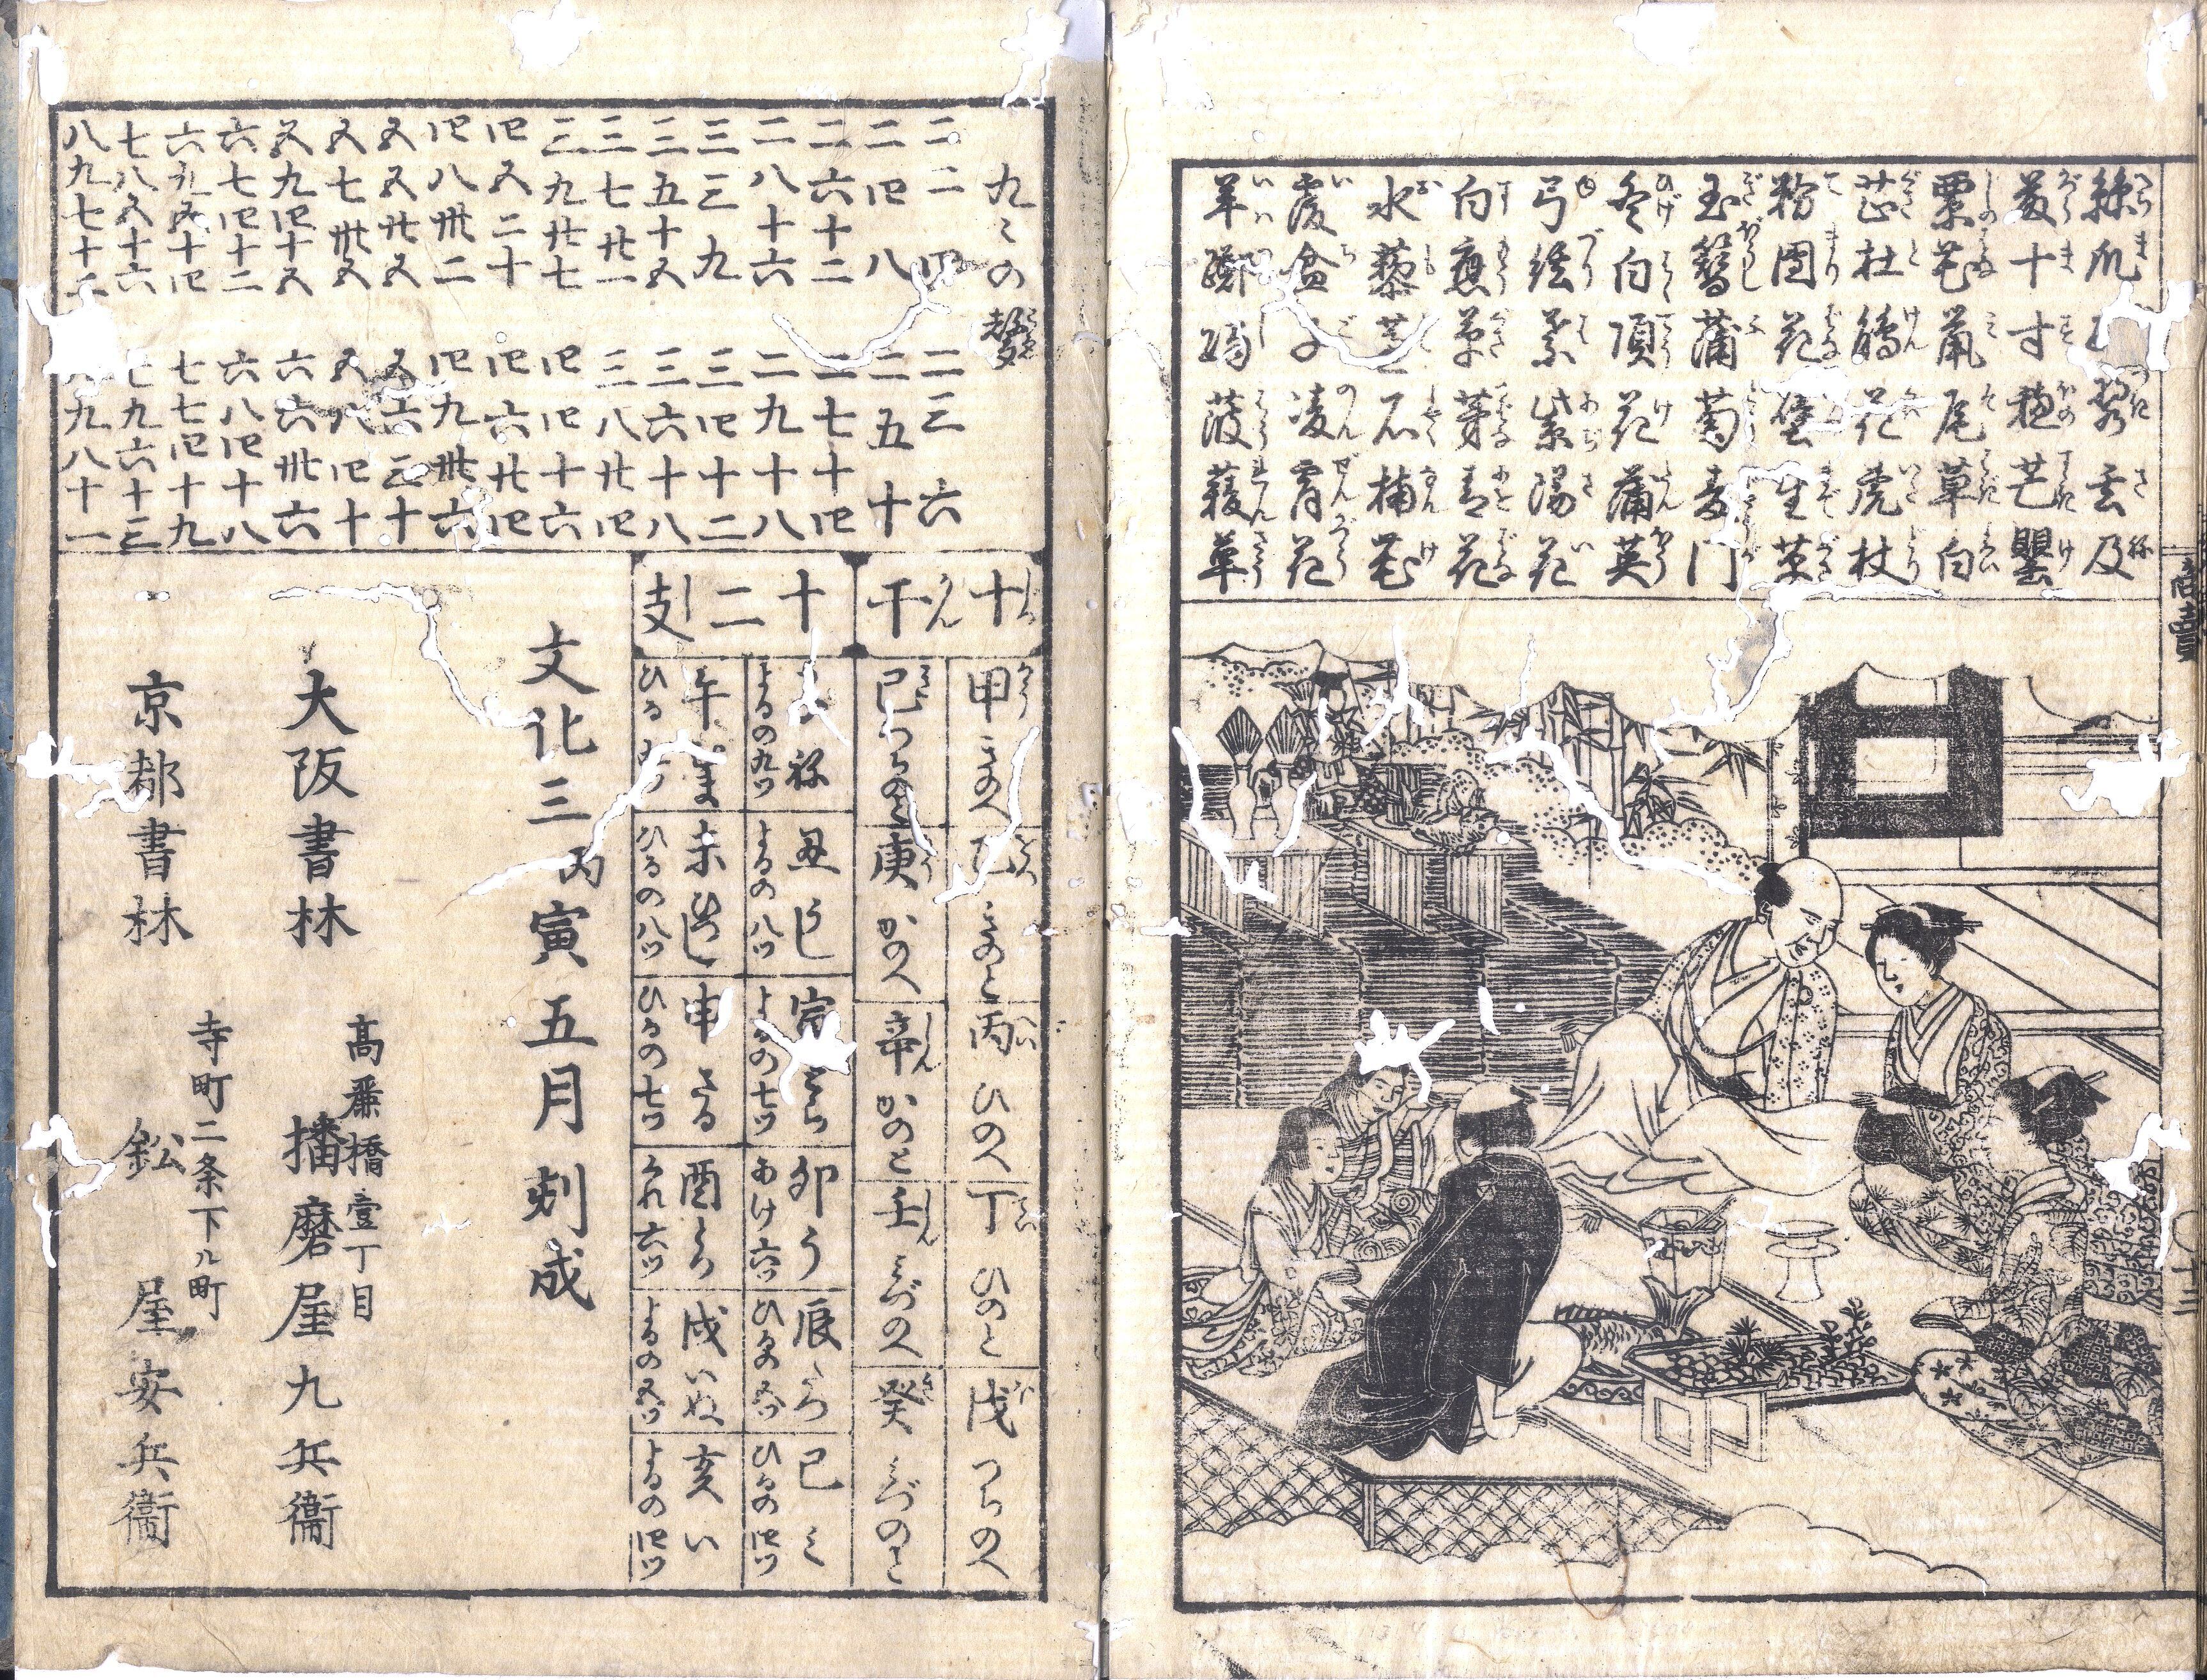 絲瓜 雲及
十寸穂芒瞿
粟花鼠尾草白
芷杜鵑花虎杖
粉團花 生草
玉簪蒲萄麦門
冬白頂花蒲英
弓 紫陽花
白 草茅 花
水藜 石楠花
覆盆子凌霄花
羊躑躅菠薐草
九〻の聲
二二四 二三六
二四八 二五十
二六十二 二七十四
二八十六 二九十八
三三九 三四十二
三五十五 三六十八
三七廿一 三八廿四
三九廿七 四四十六
四五二十 四六廿四
四八卅二 四九卅六
五五廿五 五六三十
五七卅五 五八四十
五九四十五 六六卅六
六七四十二 六八四十八
六九五十四 七七四十九
七八五十六 七九六十三
八九七十二 九八十一
十干
甲 きのへ きのと 丙 ひのへ 丁 ひのと 戊 つちのへ
己 つちのと 庚 かのへ 辛 かのと 壬 みづのへ 癸 みづのと
十二支
祢 丑 うし 寅 とら 卯 う 辰 たつ 巳 ミ
よるの九ツ よるの八ツ よるの七ツ あけ六ツ ひるの五ツ ひるの四ツ
午 むま 未 ひつじ 申 さる 酉 とり 戌 いぬ 亥 い
ひる ひるの八ツ ひるの七ツ くれ六ツ よるの五ツ よるの四ツ
文化三丙寅五月刻成
大阪書林 高麗橋壹丁目 播磨屋九兵衞
京都書林 寺町二条下ル町 鈆屋安兵衞